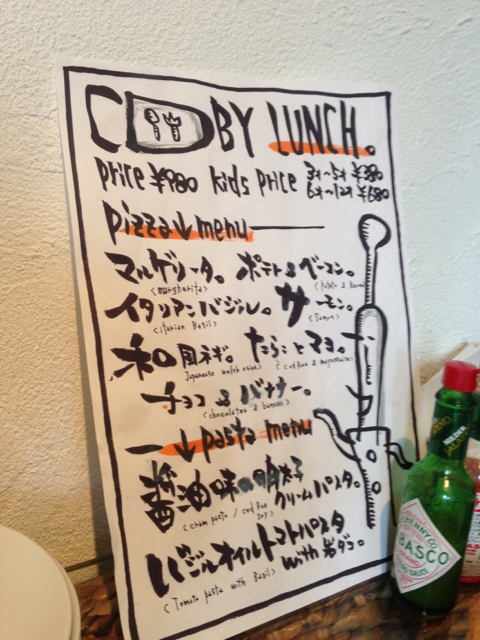 COOBY LUNCH。
price ¥980 kids price 3才〜5才 ¥380
6才〜12才 ¥680
pizza↓menu
マルゲリータ。 ポテト&ベーコン。
(margherita) (potato & bacon)
イタリアンバジル。 サーモン。
(itarian Basil) (Samon)
和風ネギ。 たらことマヨ。
(Japanese welsh onion) (cod Roe & mayonnaise)
チョコ&バナナー。
(chocolatea & banana)
↓pasta menu
醤油味の明太子
クリームパスタ。
(cream pasta / cod Roe soy)
バジルオイルトマトパスタ
with 岩ダコ。
(Tomato pasta with Basil)
MILDER
TABASCO